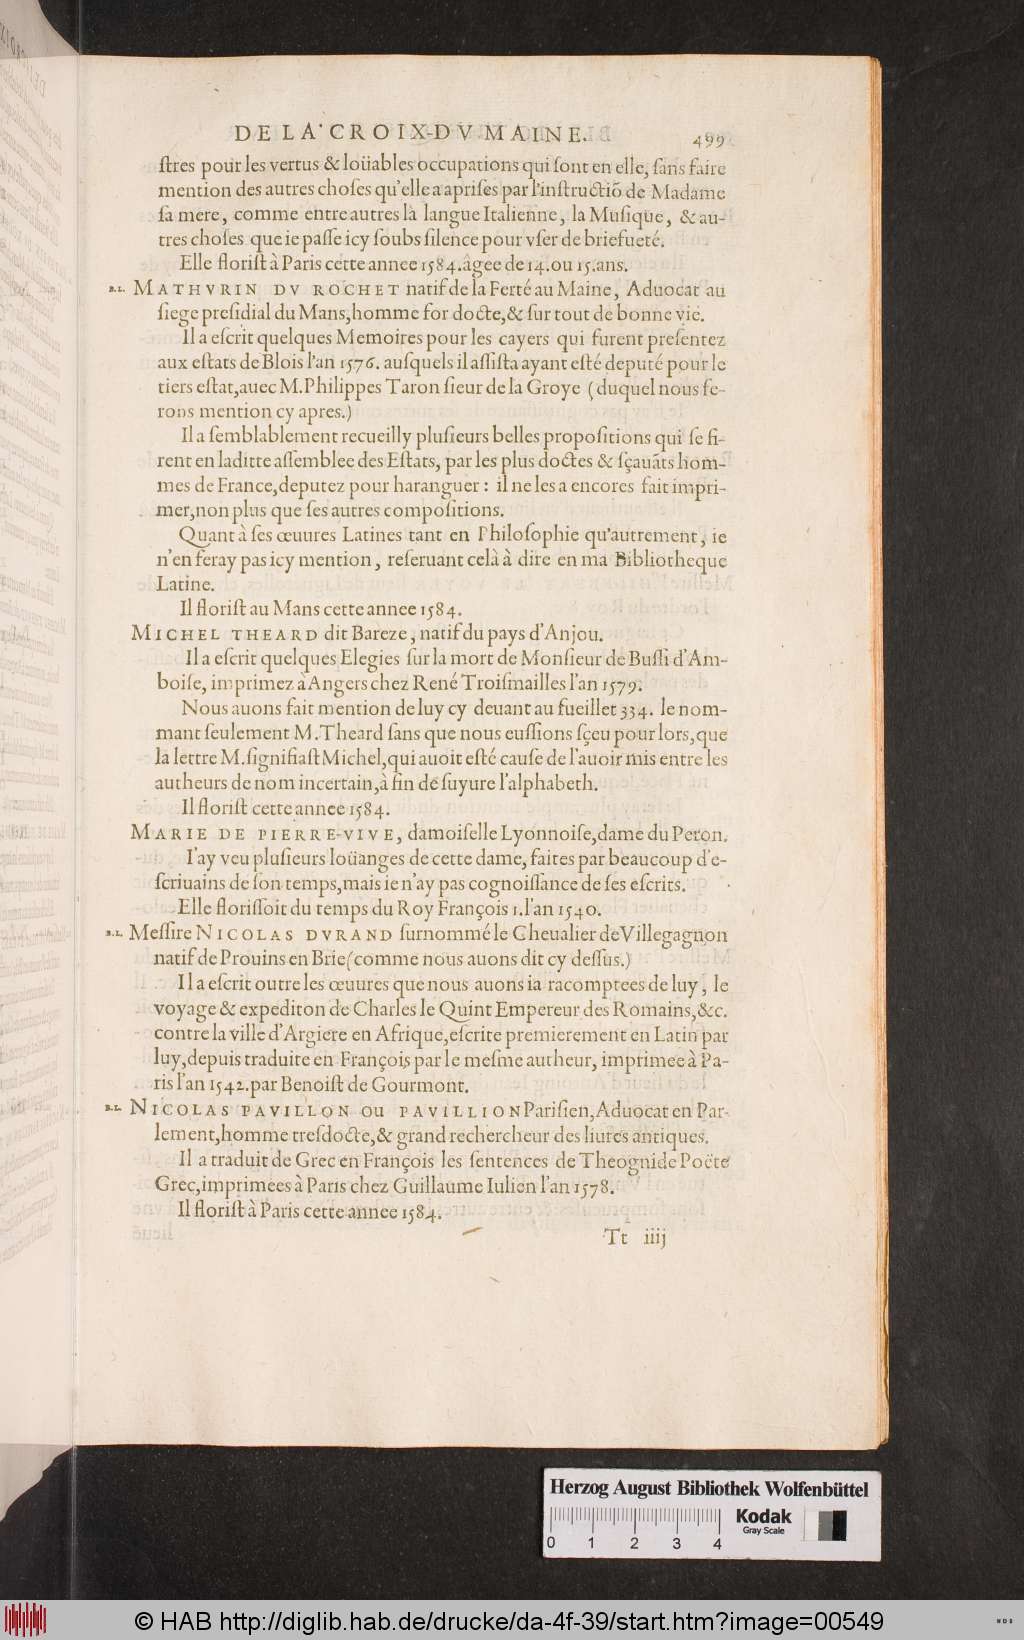 DE LA CROIX-DV MAINE. 499
ſtres pour les vertus & loüables occupations qui ſont en elle, ſans faire
mention des autres choſes qu'elle a apriſes par l'inſtructiō de Madame
ſa mere, comme entre autres la langue Italienne, la Muſique, & au-
tres choſes que ie paſſe icy ſoubs ſilence pour vſer de briefueté.
Elle floriſt à Paris cette annee 1584. âgee de 14. ou 15. ans.
B.L. MATHVRIN DV ROCHET natif de la Ferté au Maine, Aduocat au
ſiege preſidial du Mans, homme for docte, & ſur tout de bonne vie.
Il a eſcrit quelques Memoires pour les cayers qui furent preſentez
aux eſtats de Blois l'an 1576. auſquels il aſſiſta ayant eſté deputé pour le
tiers eſtat, auec M. Philippes Taron ſieur de la Groye (duquel nous fe-
rons mention cy apres.)
Il a ſemblablement recueilly pluſieurs belles propoſitions qui ſe fi-
rent en laditte aſſemblee des Eſtats, par les plus doctes & sçauāts hom-
mes de France, deputez pour haranguer : il ne les a encores fait impri-
mer, non plus que ſes autres compoſitions.
Quant à ſes œuures Latines tant en Philoſophie qu'autrement, ie
n'en feray pas icy mention, reſeruant celà à dire en ma Bibliotheque
Latine.
Il floriſt au Mans cette annee 1584.
MICHEL THEARD dit Bareze, natif du pays d'Anjou.
Il a eſcrit quelques Elegies ſur la mort de Monſieur de Buſſi d'Am-
boiſe, imprimez à Angers chez René Troiſmailles l'an 1579.
Nous auons fait mention de luy cy deuant au fueillet 334. le nom-
mant ſeulement M. Theard ſans que nous euſſions ſçeu pour lors, que
la lettre M. ſignifiaſt Michel, qui auoit eſté cauſe de l'auoir mis entre les
autheurs de nom incertain, à fin de ſuyure l'alphabeth.
Il floriſt cette annee 1584.
MARIE DE PIERRE-VIVE, damoiſelle Lyonnoiſe, dame du Peron.
I'ay veu pluſieurs loüanges de cette dame, faites par beaucoup d'e-
ſcriuains de ſon temps, mais ie n'ay pas cognoiſſance de ſes eſcrits.
Elle floriſſoit du temps du Roy François 1. l'an 1540.
B.L. Meſſire NICOLAS DVRAND ſurnommé le Cheualier de Villegagnon
natif de Prouins en Brie (comme nous auons dit cy deſſus.)
Il a eſcrit outre les œuures que nous auons ia racomptees de luy, le
voyage & expediton de Charles le Quint Empereur des Romains, &c.
contre la ville d'Argiere en Afrique, eſcrite premierement en Latin par
luy, depuis traduite en François par le meſme autheur, imprimee à Pa-
ris l'an 1542. par Benoiſt de Gourmont.
B.L. NICOLAS PAVILLON OU PAVILLION Pariſien, Aduocat en Par-
lement, homme treſdocte, & grand rechercheur des liures antiques.
Il a traduit de Grec en François les ſentences de Theognide Poëte
Grec, imprimees à Paris chez Guillaume Iulien l'an 1578.
Il floriſt à Paris cette annee 1584.
Tt iiij
Herzog August Bibliothek Wolfenbüttel
Kodak
Gray Scale
0 1 2 3 4
© HAB http://diglib.hab.de/drucke/da-4f-39/start.htm?image=00549